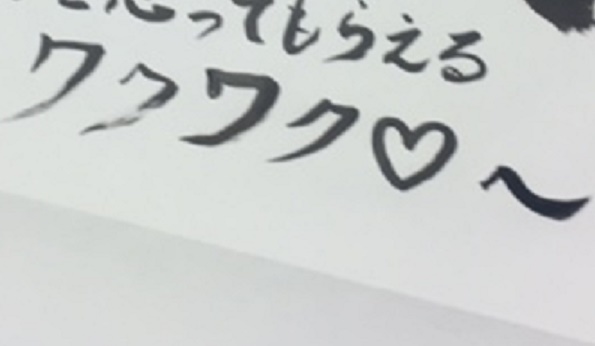 思ってもらえる
ワクワク♡〜